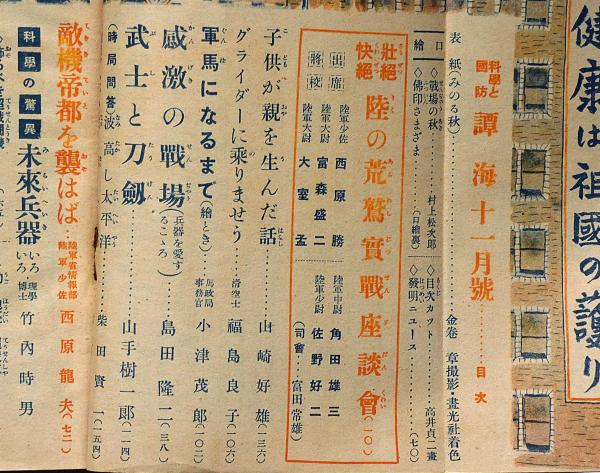 健康は祖國の護り
科學と國防 譚海十一月號……目次
表紙(みのる秋)……金巻 章撮影・畫光社着色
口繪
◇戰場の秋……村上松次郎
◇佛印さまざま……(口繪裏)
◇目次カット……高井貞二畫
◇發明ニュース……(七〇)
壯絕快絕 陸の荒鷲實戰座談會(一〇)
出席將校
陸軍少佐 西原勝
陸軍大尉 富森盛二
陸軍大尉 大室孟
陸軍中尉 角田雄三
陸軍少尉 佐野好二
(司會…富田常雄)
子供が親を生んだ話……山崎好雄(一三六)
グライダーに乘りませう……滑空士 福島良子(一〇六)
軍馬になるまで(繪とき)……馬政局事務官 小津茂郎(一〇二)
感激の戰場(兵器を愛するこゝろ)……島田隆二(三八)
武士と刀劔……山手樹一郎(二一四)
(時局問答)波高し太平洋……柴田賢一(一五四)
敵機帝都を襲はば…陸軍省情報部 陸軍少佐 西原龍夫(七二)
科學の驚異 未來兵器いろいろ 理學博士 竹內時男